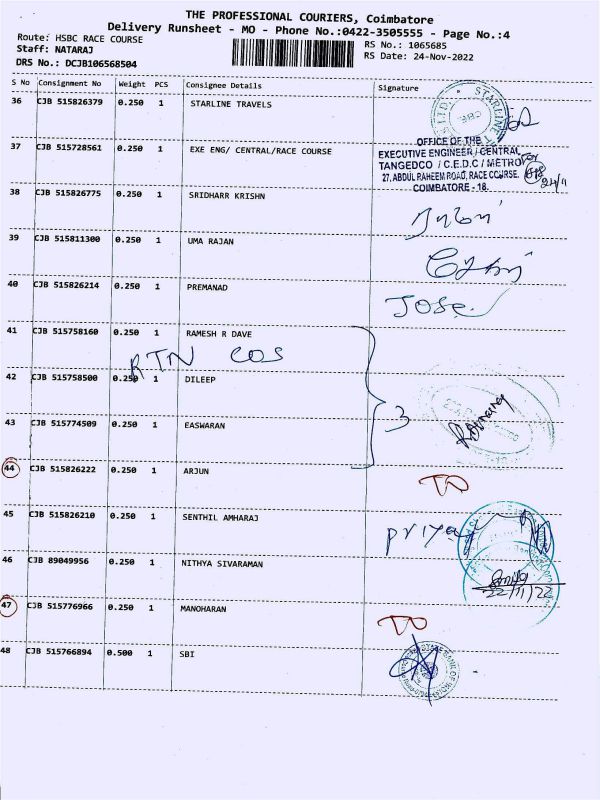 THE PROFESSIONAL COURIERS, Coimbatore
Delivery Runsheet - MO - Phone No.:0422-3505555 - Page No.:4
Route: HSBC RACE COURSE
RS No.: 1065685
Staff: NATARAJ
RS Date: 24-Nov-2022
DRS No.: DCJB106568504
S No Consignment No Weight PCS Consignee Details Signature
36 CJB 515826379 0.250 1 STARLINE TRAVELS
STARLINE
37 CJB 515728561 0.250 1 EXE ENG/ CENTRAL/RACE COURSE
OFFICE OF THE
EXECUTIVE ENGINEER / CENTRAL
TANGEDCO / C.E.D.C / METRO
27, ABDUL RAHEEM ROAD, RACE COURSE.
COIMBATORE - 18.
24/11
38 CJB 515826775 0.250 1 SRIDHARR KRISHN
39 CJB 515811300 0.250 1 UMA RAJAN
40 CJB 515826214 0.250 1 PREMANAD
Jose
41 CJB 515758160 0.250 1 RAMESH R DAVE
RTN COS
42 CJB 515758500 0.250 1 DILEEP
3
43 CJB 515774509 0.250 1 EASWARAN
44 CJB 515826222 0.250 1 ARJUN
TO
45 CJB 515826210 0.250 1 SENTHIL AMHARAJ
priya
46 CJB 89049956 0.250 1 NITHYA SIVARAMAN
22/11/22
47 CJB 515776966 0.250 1 MANOHARAN
TO
48 CJB 515766894 0.500 1 SBI
STATE BANK OF INDIA